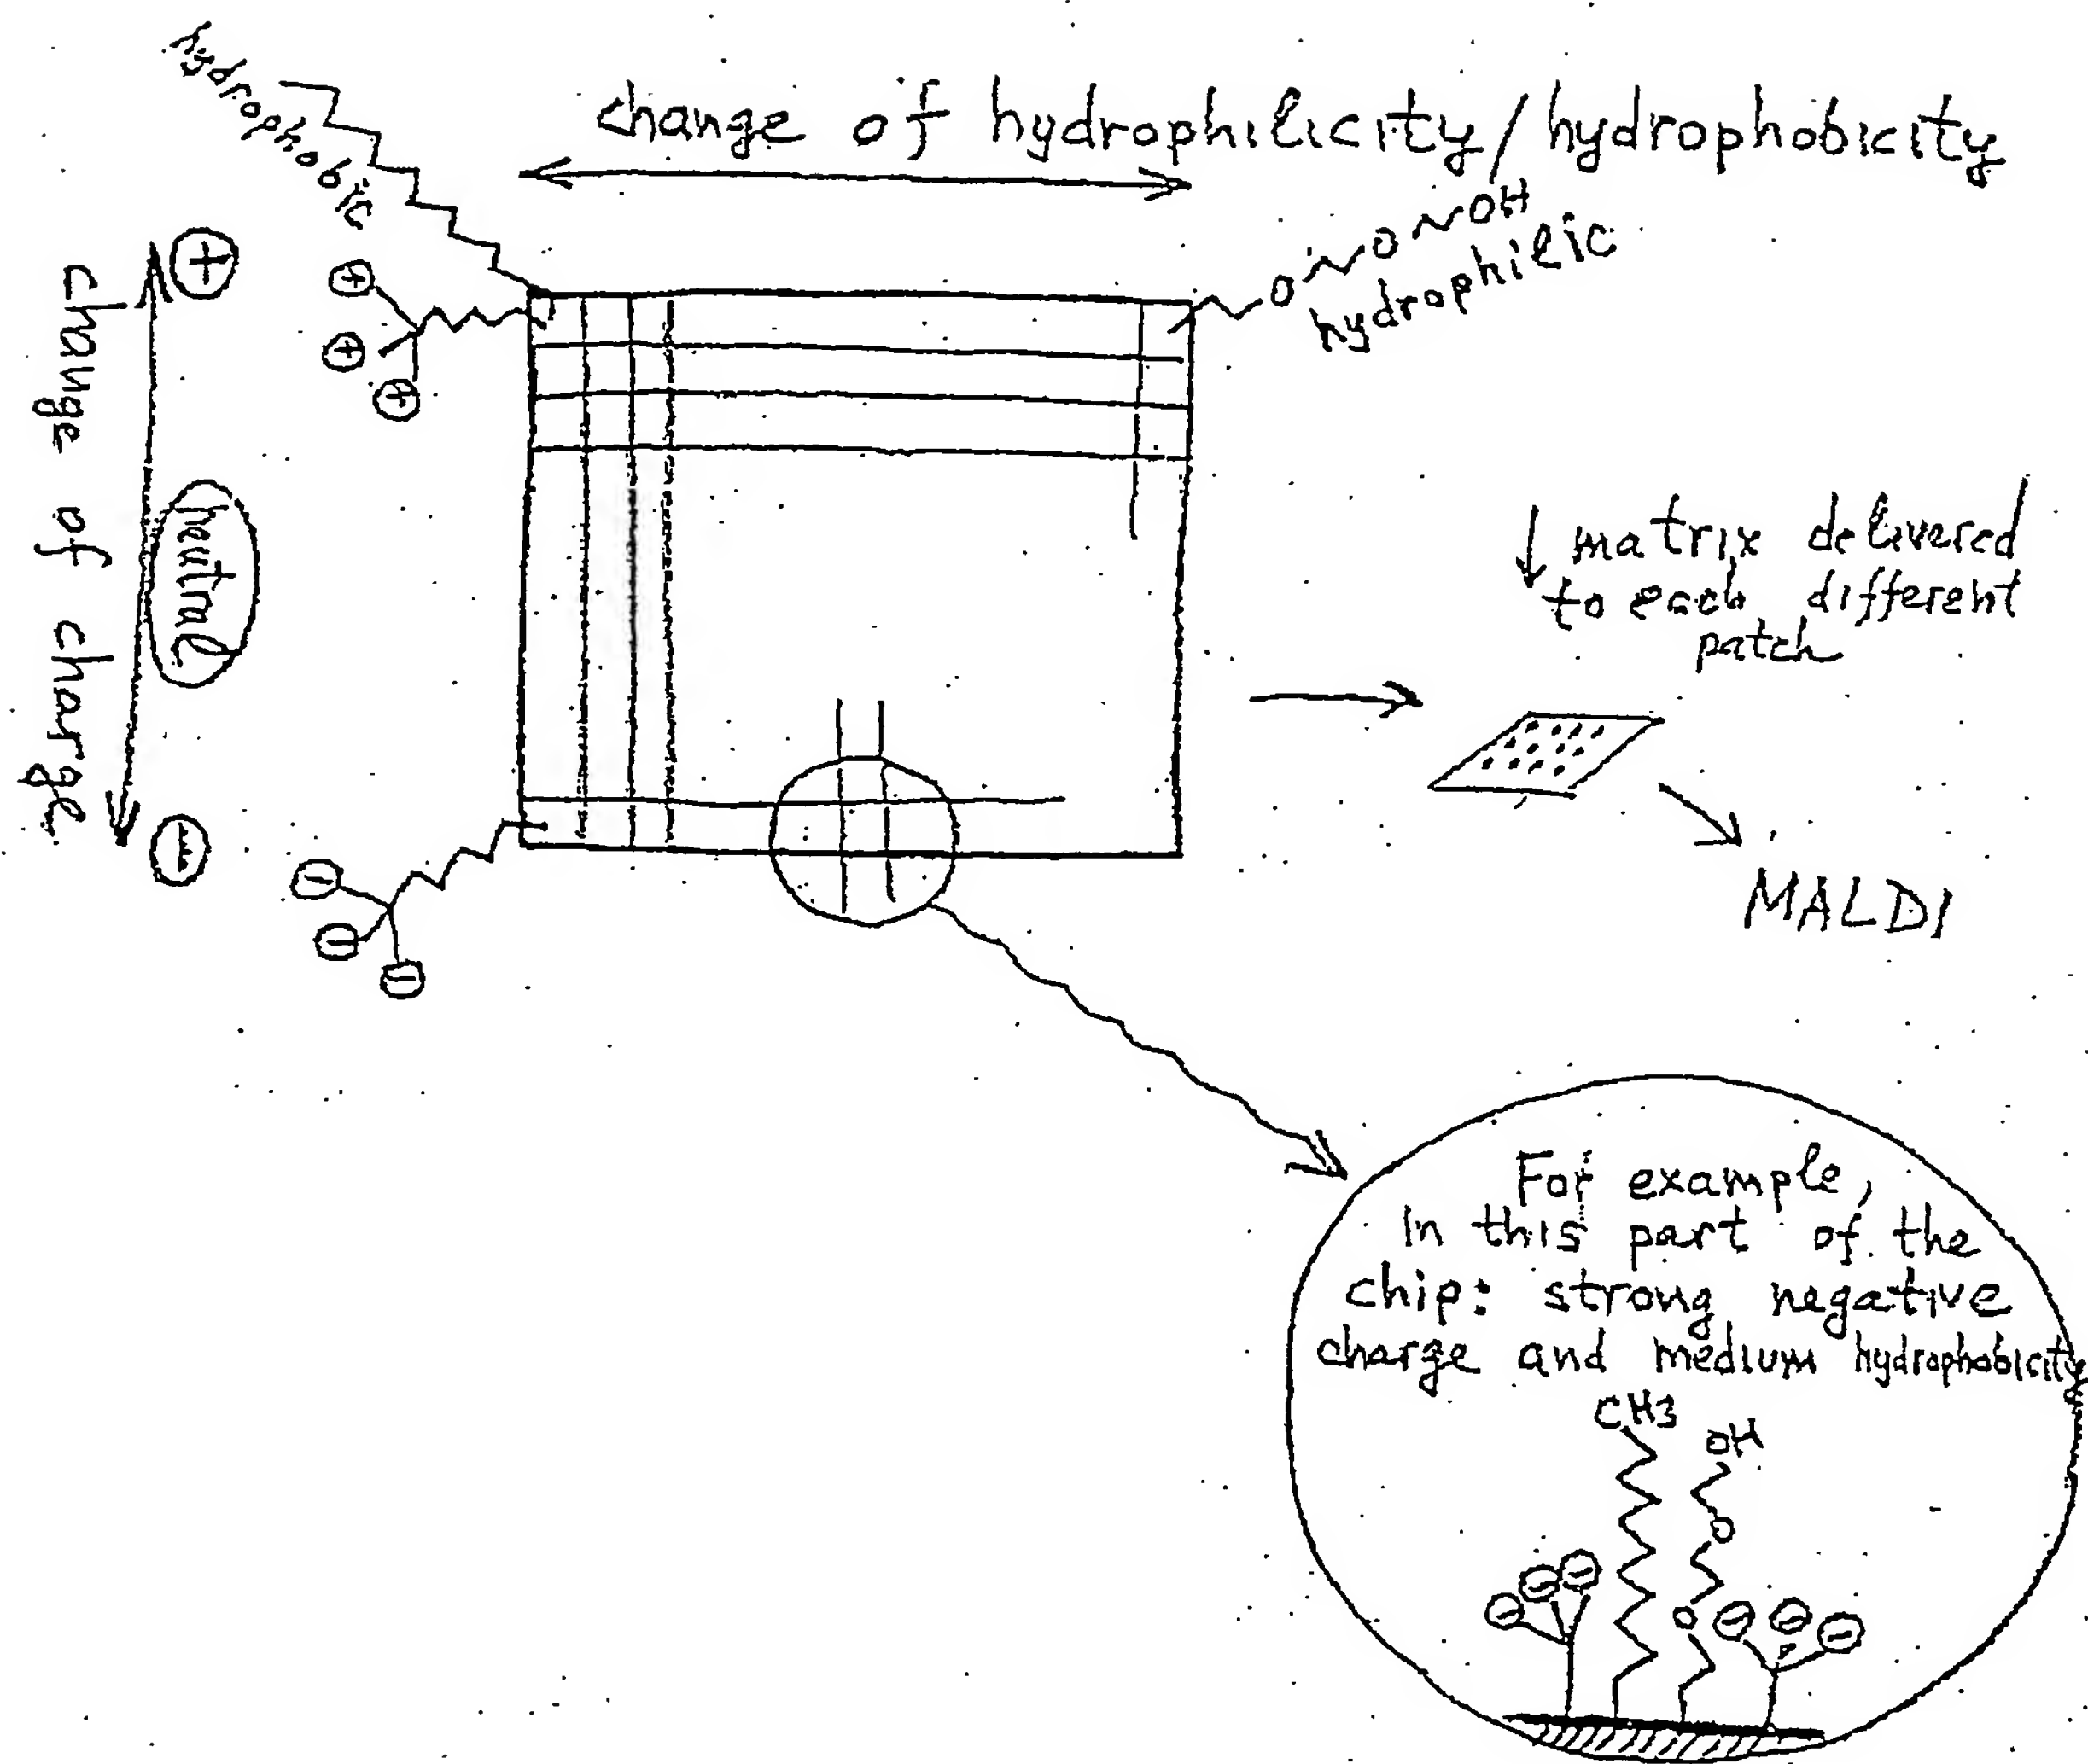 change of hydrophilicity/hydrophobicity
hydrophobic
OH
O
O
hydrophilic
+
+
+
+
change of charge
neutral
matrix delivered
to each different
patch
MALDI
−
−
−
−
For example,
In this part of the
chip: strong negative
charge and medium hydrophobicity
CH3
OH
O
O
− − −
− − −